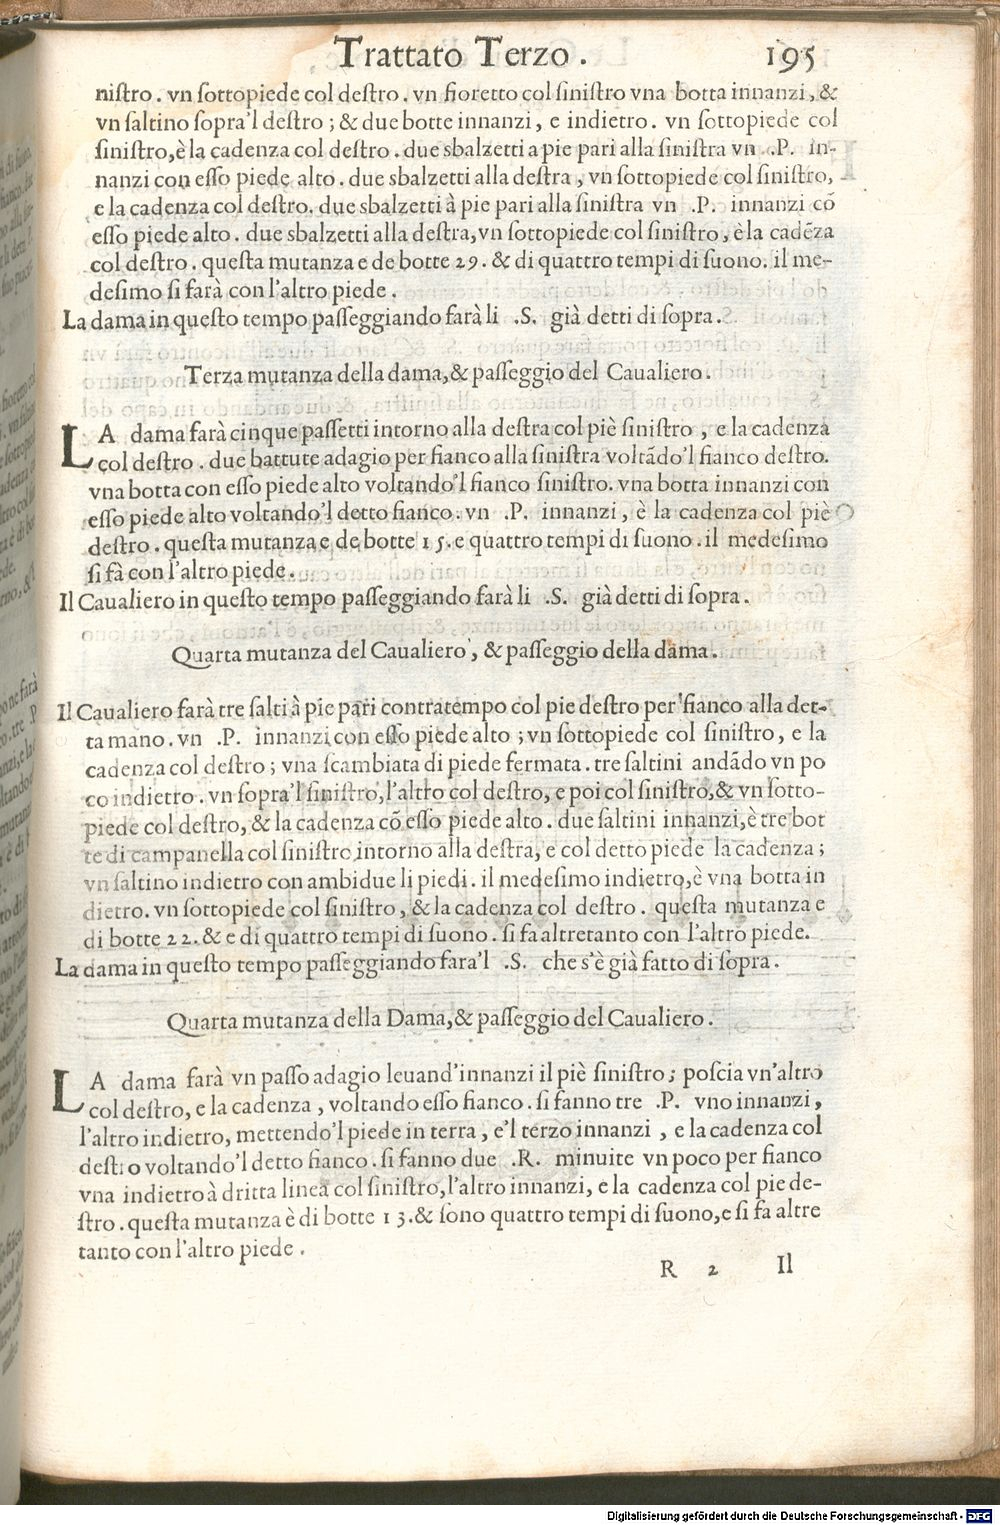 Trattato Terzo. 195
niſtro. vn ſottopiede col deſtro. vn fioretto col ſiniſtro vna botta innanzi, &
vn ſaltino ſopra'l deſtro; & due botte innanzi, e indietro. vn ſottopiede col
ſiniſtro, è la cadenza col deſtro. due sbalzetti a pie pari alla ſiniſtra vn .P. in-
nanzi con eſſo piede alto. due sbalzetti alla deſtra, vn ſottopiede col ſiniſtro,
e la cadenza col deſtro. due sbalzetti à pie pari alla ſiniſtra vn .P. innanzi cõ
eſſo piede alto. due sbalzetti alla deſtra, vn ſottopiede col ſiniſtro, è la cadẽza
col deſtro. queſta mutanza e de botte 29. & di quattro tempi di ſuono. il me-
deſimo ſi farà con l'altro piede.
La dama in queſto tempo paſſeggiando farà li .S. già detti di ſopra.
Terza mutanza della dama, & paſſeggio del Caualiero.
LA dama farà cinque paſſetti intorno alla deſtra col piè ſiniſtro, e la cadenza
col deſtro. due battute adagio per fianco alla ſiniſtra voltãdo'l fianco deſtro.
vna botta con eſſo piede alto voltando'l fianco ſiniſtro. vna botta innanzi con
eſſo piede alto voltando'l detto fianco. vn .P. innanzi, è la cadenza col piè
deſtro. queſta mutanza e de botte 15. e quattro tempi di ſuono. il medeſimo
ſi fà con l'altro piede.
Il Caualiero in queſto tempo paſſeggiando farà li .S. già detti di ſopra.
Quarta mutanza del Caualiero, & paſſeggio della dama.
Il Caualiero farà tre ſalti à pie pari contratempo col pie deſtro per fianco alla det-
ta mano. vn .P. innanzi con eſſo piede alto; vn ſottopiede col ſiniſtro, e la
cadenza col deſtro; vna ſcambiata di piede fermata. tre ſaltini andãdo vn po
co indietro. vn ſopra'l ſiniſtro, l'altro col deſtro, e poi col ſiniſtro, & vn ſotto-
piede col deſtro, & la cadenza cõ eſſo piede alto. due ſaltini innanzi, è tre bot
te di campanella col ſiniſtro intorno alla deſtra, e col detto piede la cadenza;
vn ſaltino indietro con ambidue li piedi. il medeſimo indietro, è vna botta in
dietro. vn ſottopiede col ſiniſtro, & la cadenza col deſtro. queſta mutanza e
di botte 22. & e di quattro tempi di ſuono. ſi fa altretanto con l'altro piede.
La dama in queſto tempo paſſeggiando fara'l .S. che s'è già fatto di ſopra.
Quarta mutanza della Dama, & paſſeggio del Caualiero.
LA dama farà vn paſſo adagio leuand'innanzi il piè ſiniſtro; poſcia vn'altro
col deſtro, e la cadenza, voltando eſſo fianco. ſi fanno tre .P. vno innanzi,
l'altro indietro, mettendo'l piede in terra, e'l terzo innanzi, e la cadenza col
deſtro voltando'l detto fianco. ſi fanno due .R. minuite vn poco per fianco
vna indietro à dritta linea col ſiniſtro, l'altro innanzi, e la cadenza col pie de-
ſtro. queſta mutanza è di botte 13. & ſono quattro tempi di ſuono, e ſi fa altre
tanto con l'altro piede.
R 2 Il
Digitalisierung gefördert durch die Deutsche Forschungsgemeinschaft - DFG